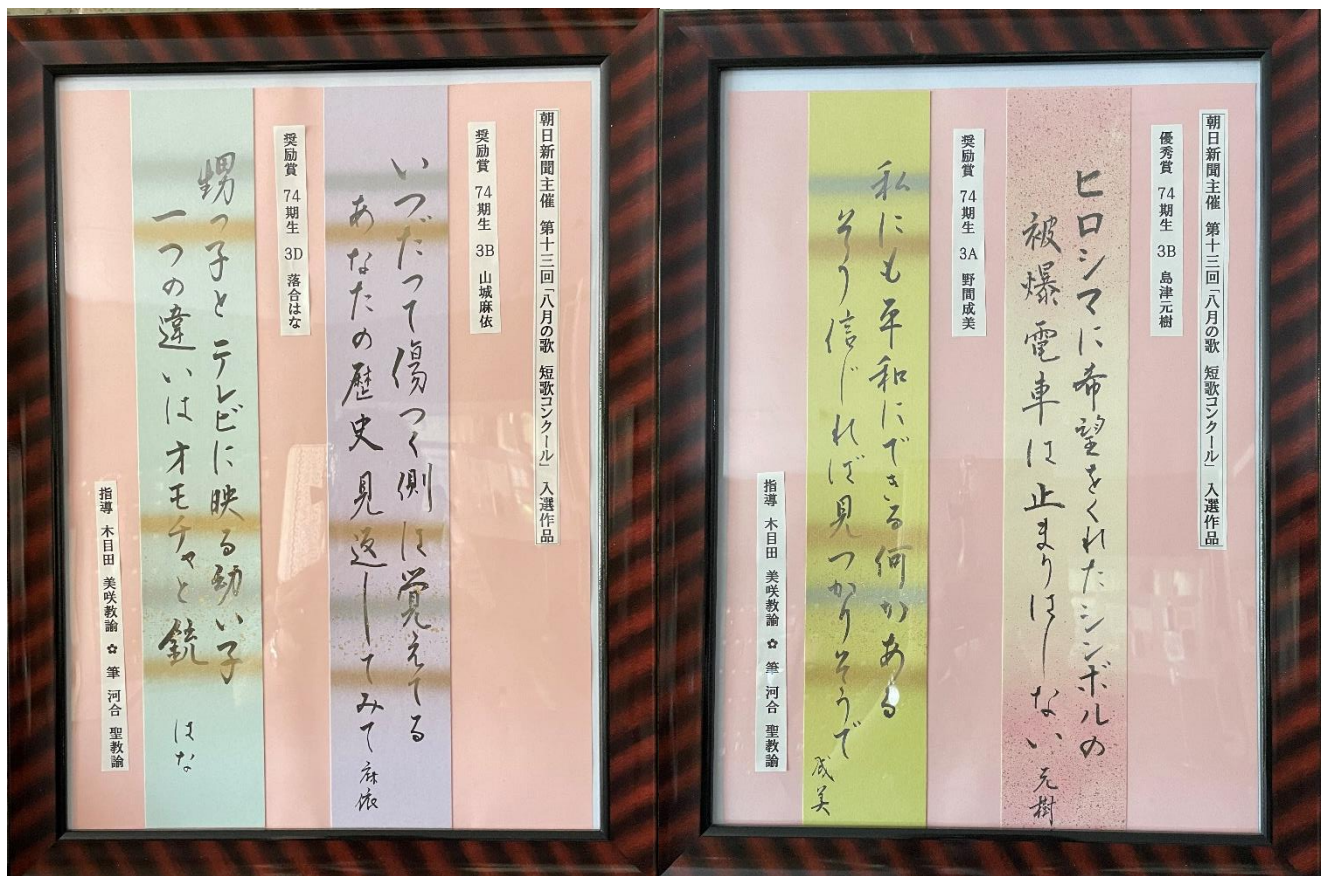 朝日新聞主催 第十三回「八月の歌 短歌コンクール」 入選作品
優秀賞 74期生 3B 島津元樹
ヒロシマに希望をくれたシンボルの
被爆電車は止まりはしない 元樹
奨励賞 74期生 3A 野間成美
私にも平和にできる何かある
そう信じれば見つかりそうで 成美
指導 木目田 美咲教諭 ✿ 筆 河合 聖教諭
朝日新聞主催 第十三回「八月の歌 短歌コンクール」 入選作品
奨励賞 74期生 3B 山城麻依
いつだって傷つく側は覚えてる
あなたの歴史見返してみて 麻依
奨励賞 74期生 3D 落合はな
甥っ子とテレビに映る幼い子
一つの違いはオモチャと銃 はな
指導 木目田 美咲教諭 ✿ 筆 河合 聖教諭